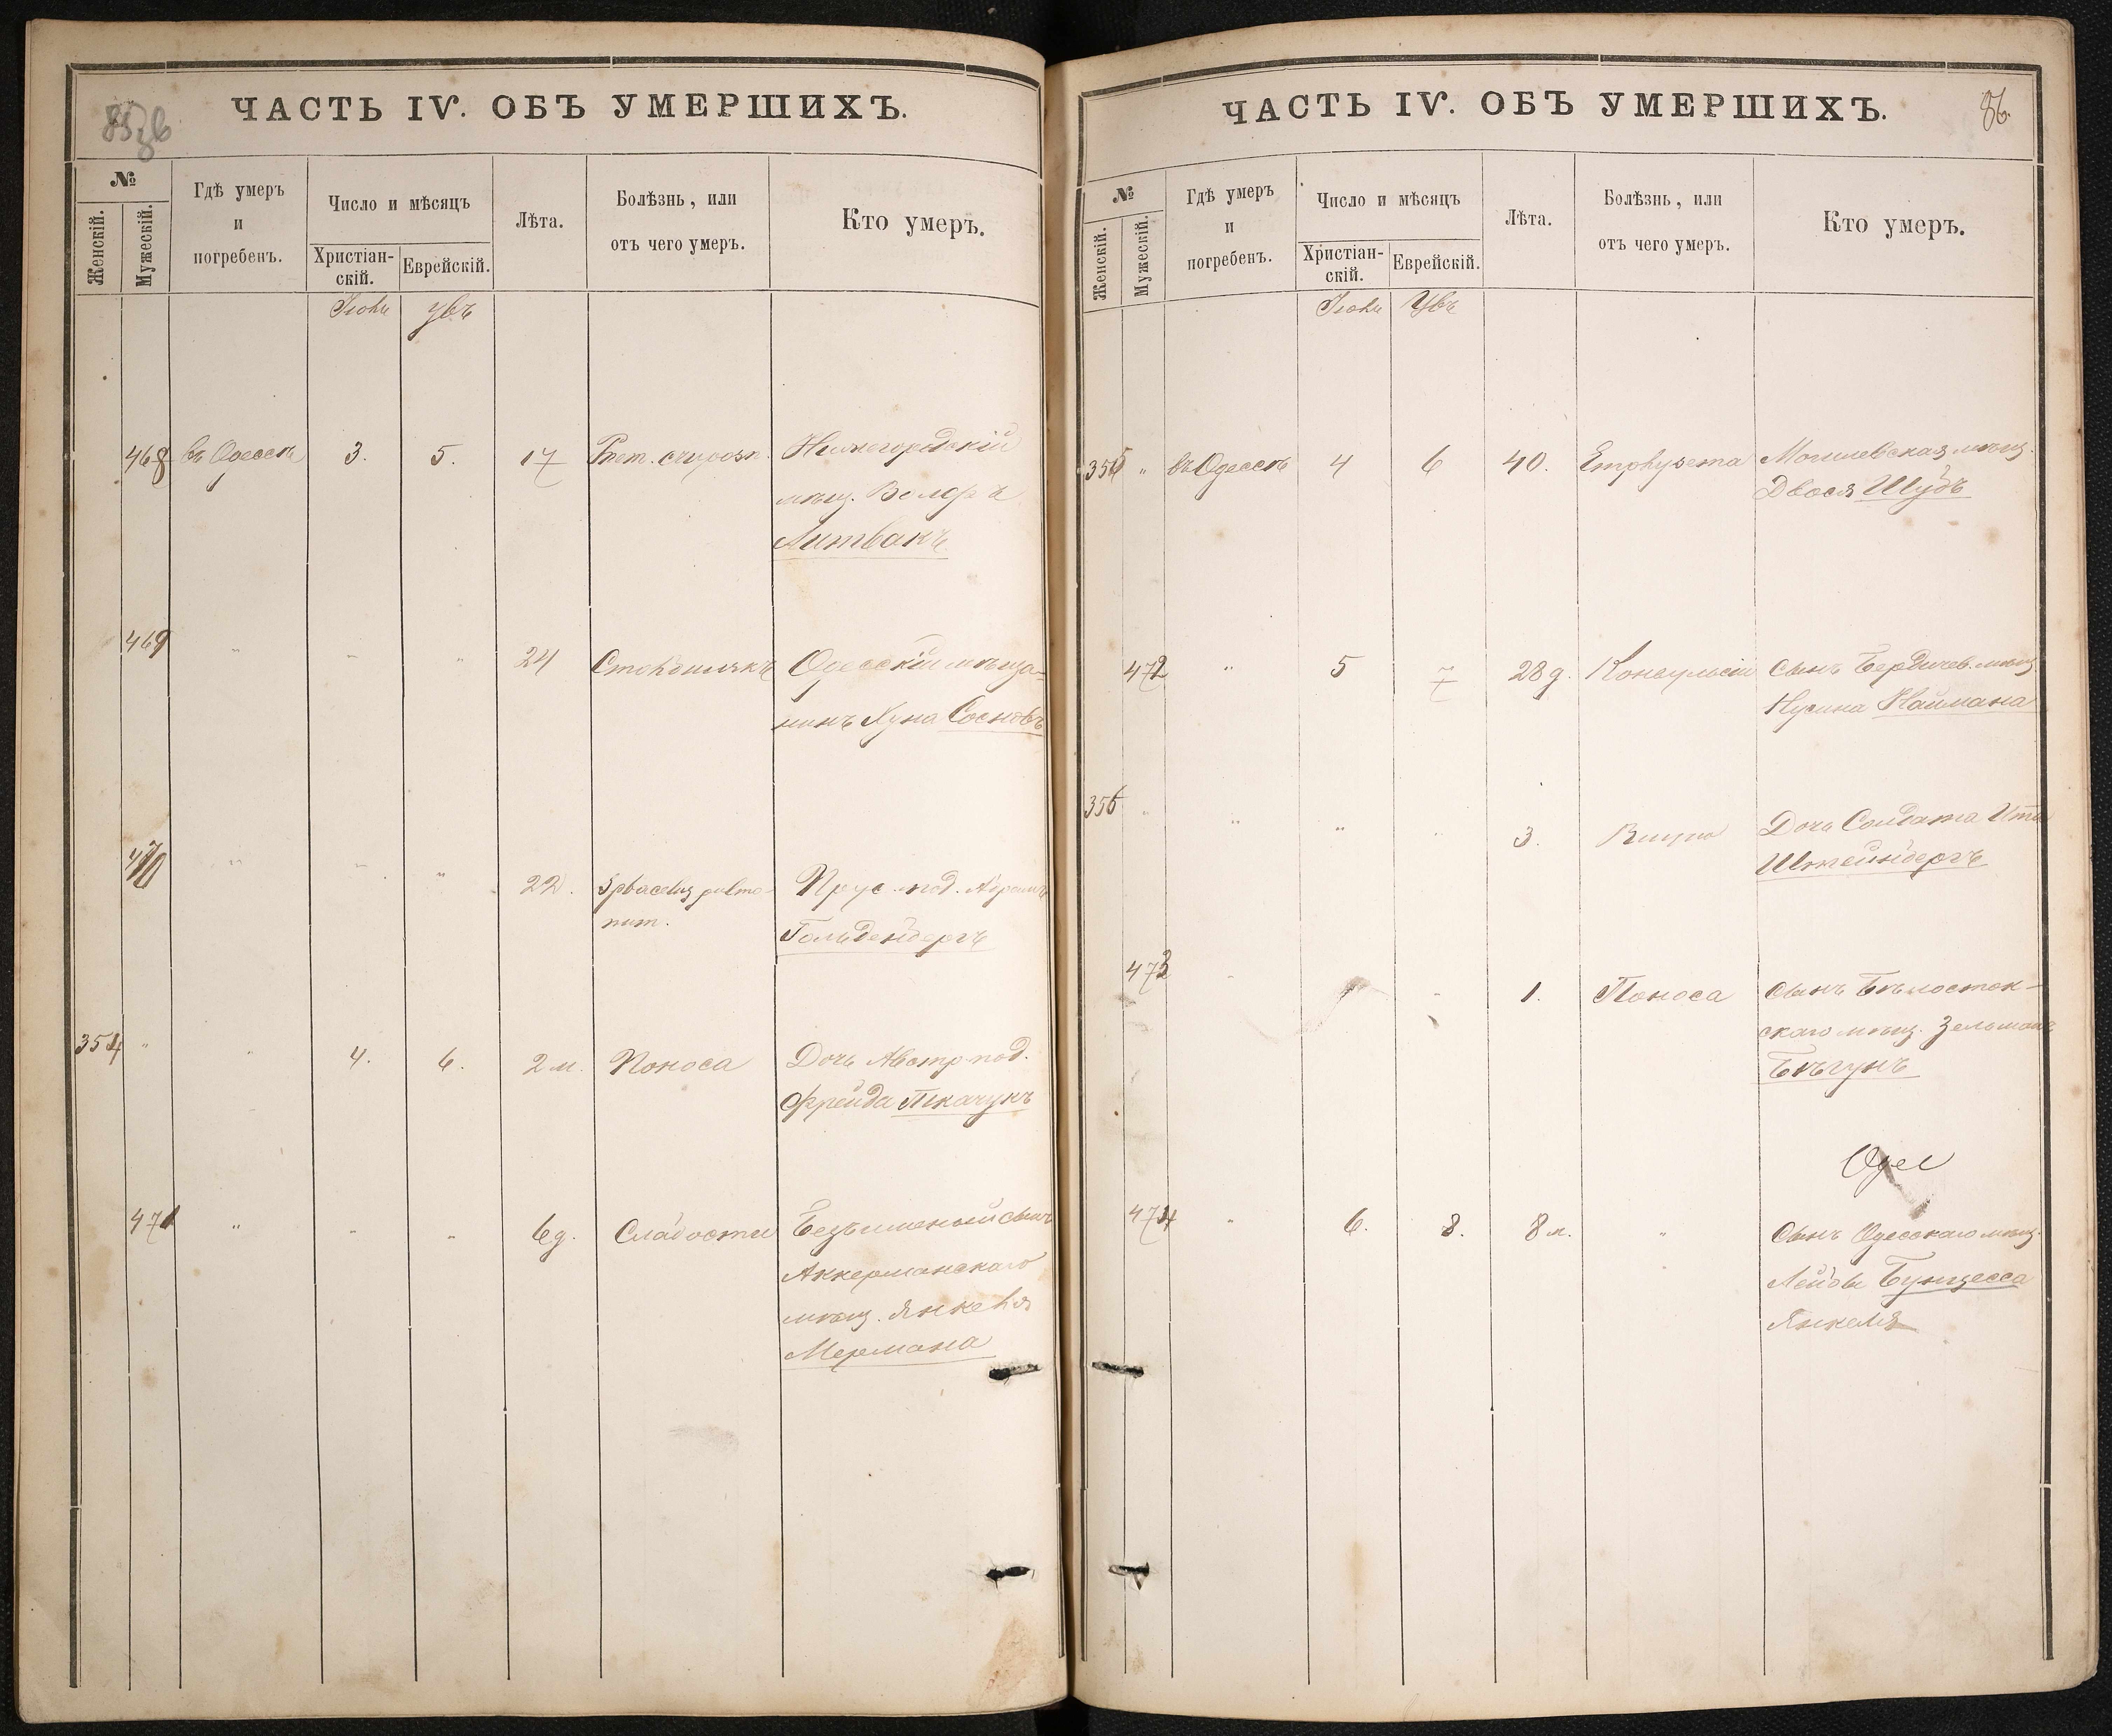 ЧАСТЬ IV. ОБЪ УМЕРШИХЪ.
№
Женскій.
Мужескій.
Гдѣ умеръ
и
погребенъ.
Число и мѣсяцъ
Христіан-
скій.
Еврейскій.
Лѣта.
Болѣзнь, или
отъ чего умеръ.
Кто умеръ.
468 въ Одессѣ 3. 5. 17 Нижегородскій
мѣщ.
Литвакъ
469 " " " 24 Одесскій мѣща-
нинъ Хуна Сосновъ
470 " " " 22. Sphacelus pulmo-
num. Прус. под. Абрамъ
Гольденбергъ
354 " " 4. 6. 2 м. Поноса Дочь Австр. под.
Фрейда Ткачукъ
471 " " " 6 д. Слабости Безъименный сынъ
Аккерманскаго
мѣщ. Янкеля
Мермана
ЧАСТЬ IV. ОБЪ УМЕРШИХЪ.
86.
№
Женскій.
Мужескій.
Гдѣ умеръ
и
погребенъ.
Число и мѣсяцъ
Христіан-
скій.
Еврейскій.
Лѣта.
Болѣзнь, или
отъ чего умеръ.
Кто умеръ.
355 " въ Одессѣ 4 6 40. Emphysema Могилевская мѣщ.
Двося Шубъ
472 " 5 7 28 д. Конвульсіи Сынъ Бердичев. мѣщ.
Нусина Наймана
356 " " " " 3. Дочь Солдата
Штейнбергъ
473 " " 1. Поноса Сынъ Бѣлосток-
скаго мѣщ. Зельмана
Бѣгунъ
474 " 6. 8. 8 м. " Сынъ Одесскаго мѣщ.
Лейбы Бунцесса
Янкель